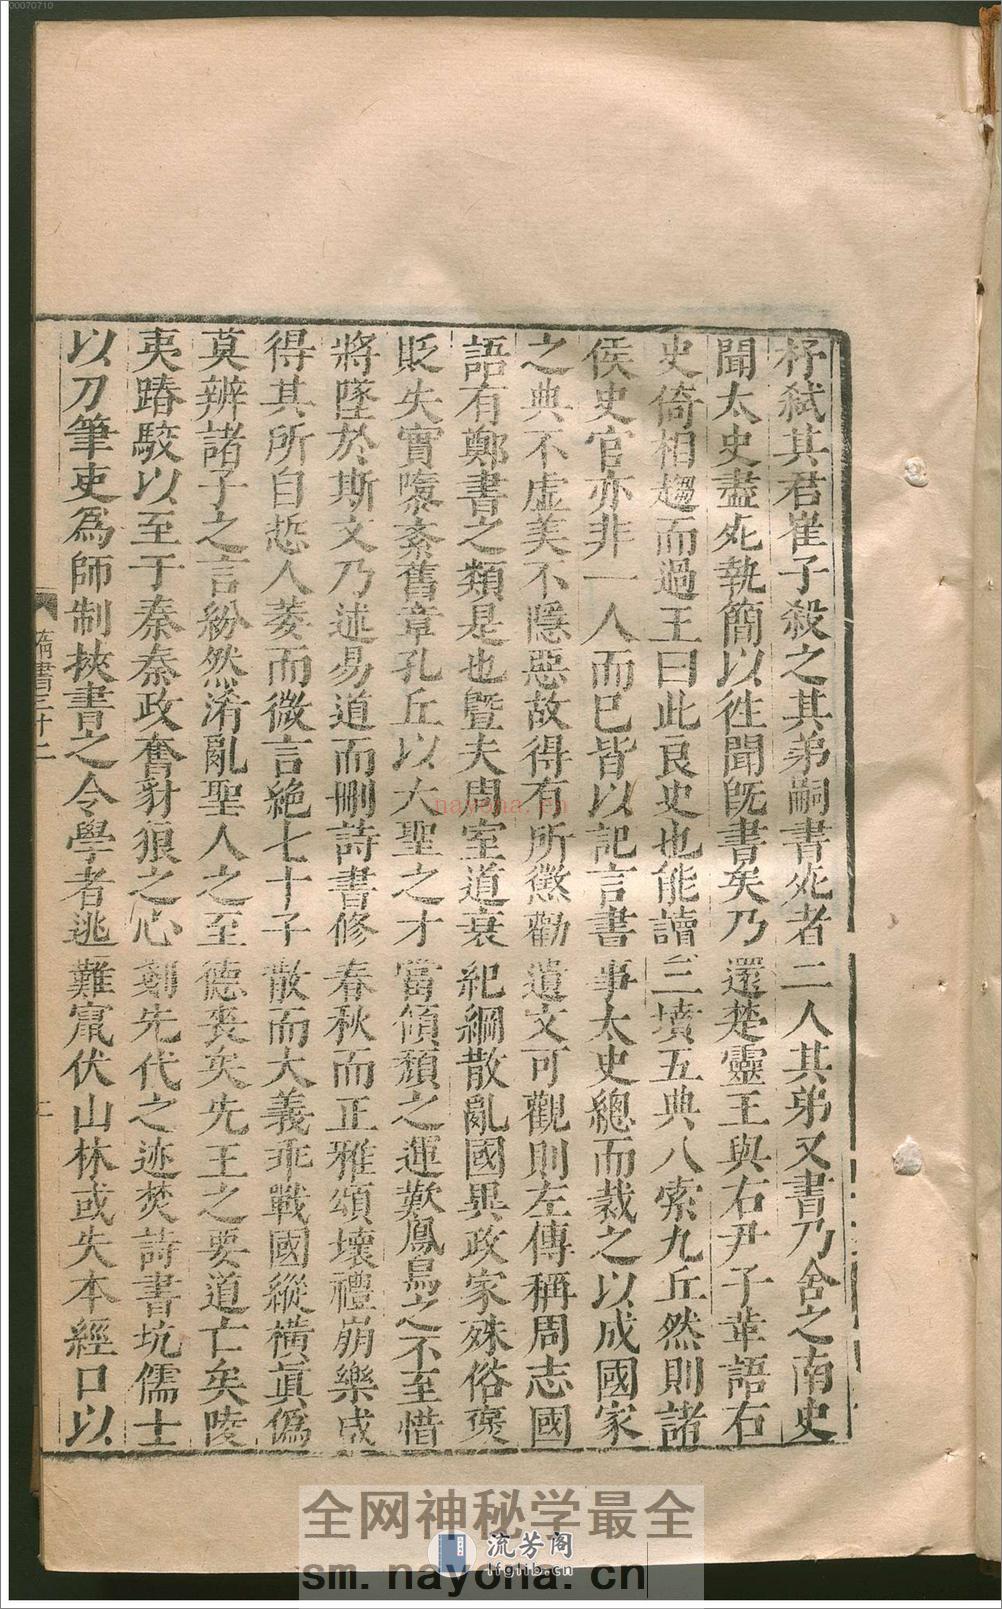 00070710
杼弑其君崔子殺之其弟嗣書死者二人其弟又書乃舍之南史
聞太史盡死執簡以徃聞旣書矣乃還楚靈王與右尹子革語右
史倚相趨而過王曰此良史也能讀三墳五典八索九丘然則諸
侯史官亦非一人而已皆以記言書事太史總而裁之以成國家
之典不虛美不隱惡故得有所懲勸遺文可觀則左傳稱周志國
語有鄭書之類是也曁夫周室道衰紀綱散亂國異政家殊俗褒
貶失實隳紊舊章孔丘以大聖之才當傾頹之運歎鳳鳥之不至惜
將墜於斯文乃述易道而刪詩書修春秋而正雅頌壞禮崩樂咸
得其所自哲人萎而微言絶七十子散而大義乖戰國縱橫眞僞
莫辨諸子之言紛然淆亂聖人之至德喪矣先王之要道亡矣陵
夷踳駮以至于秦秦政奮豺狼之心剗先代之迹焚詩書坑儒士
以刀筆吏爲師制挾書之令學者逃難竄伏山林或失本經口以
隋書三十二
二
nayona.cn
全网神秘学最全
流芳阁
lfglib.cn
sm.nayona.cn